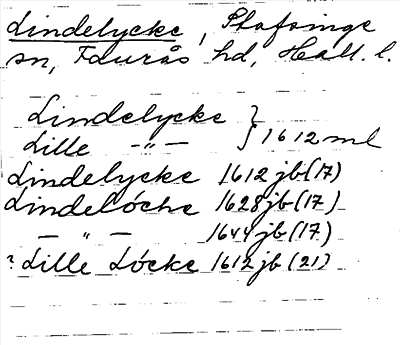 Lindelycke, Stafsinge
sn, Faurås hd, Hall. l.
Lindelycke }
Lille —"— } 1612 ml
Lindelycke 1612 jb (17)
Lindelöche 1628 jb (17)
— " — 1644 jb (17)
? Lille Löcke 1612 jb (21)